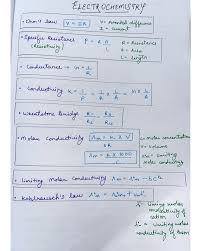 ELECTROCHEMISTRY
• Ohm's law V = IR V = potential difference
I = current
• Specific Resistance
(Resistivity) ρ = R A / l R = Resistance
A = Area
l = Length
• Conductance → G = 1/R
• Conductivity K = 1/ρ
• Wheatstone Bridge R1/R2
• Molar Conductivity Λm = K × V
Λm = K × 1000
V = Volume
• Limiting molar conductivity
Λm = Λ°m - bc½
• Kohlrausch's law Λ°m =
limiting molar
conductivity of
cation
limiting molar
conductivity of anion